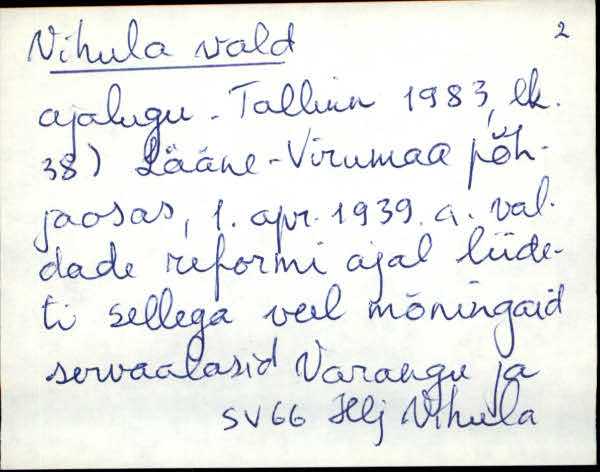 Vihula vald 2
ajalugu - Tallinn 1983, lk.
38) Lääne-Virumaa põh-
jaosas, 1. apr. 1939. a. val-
dade reformi ajal liide-
ti sellega veel mõningaid
servaalasid Varangu ja
SV66 Hlj Vihula